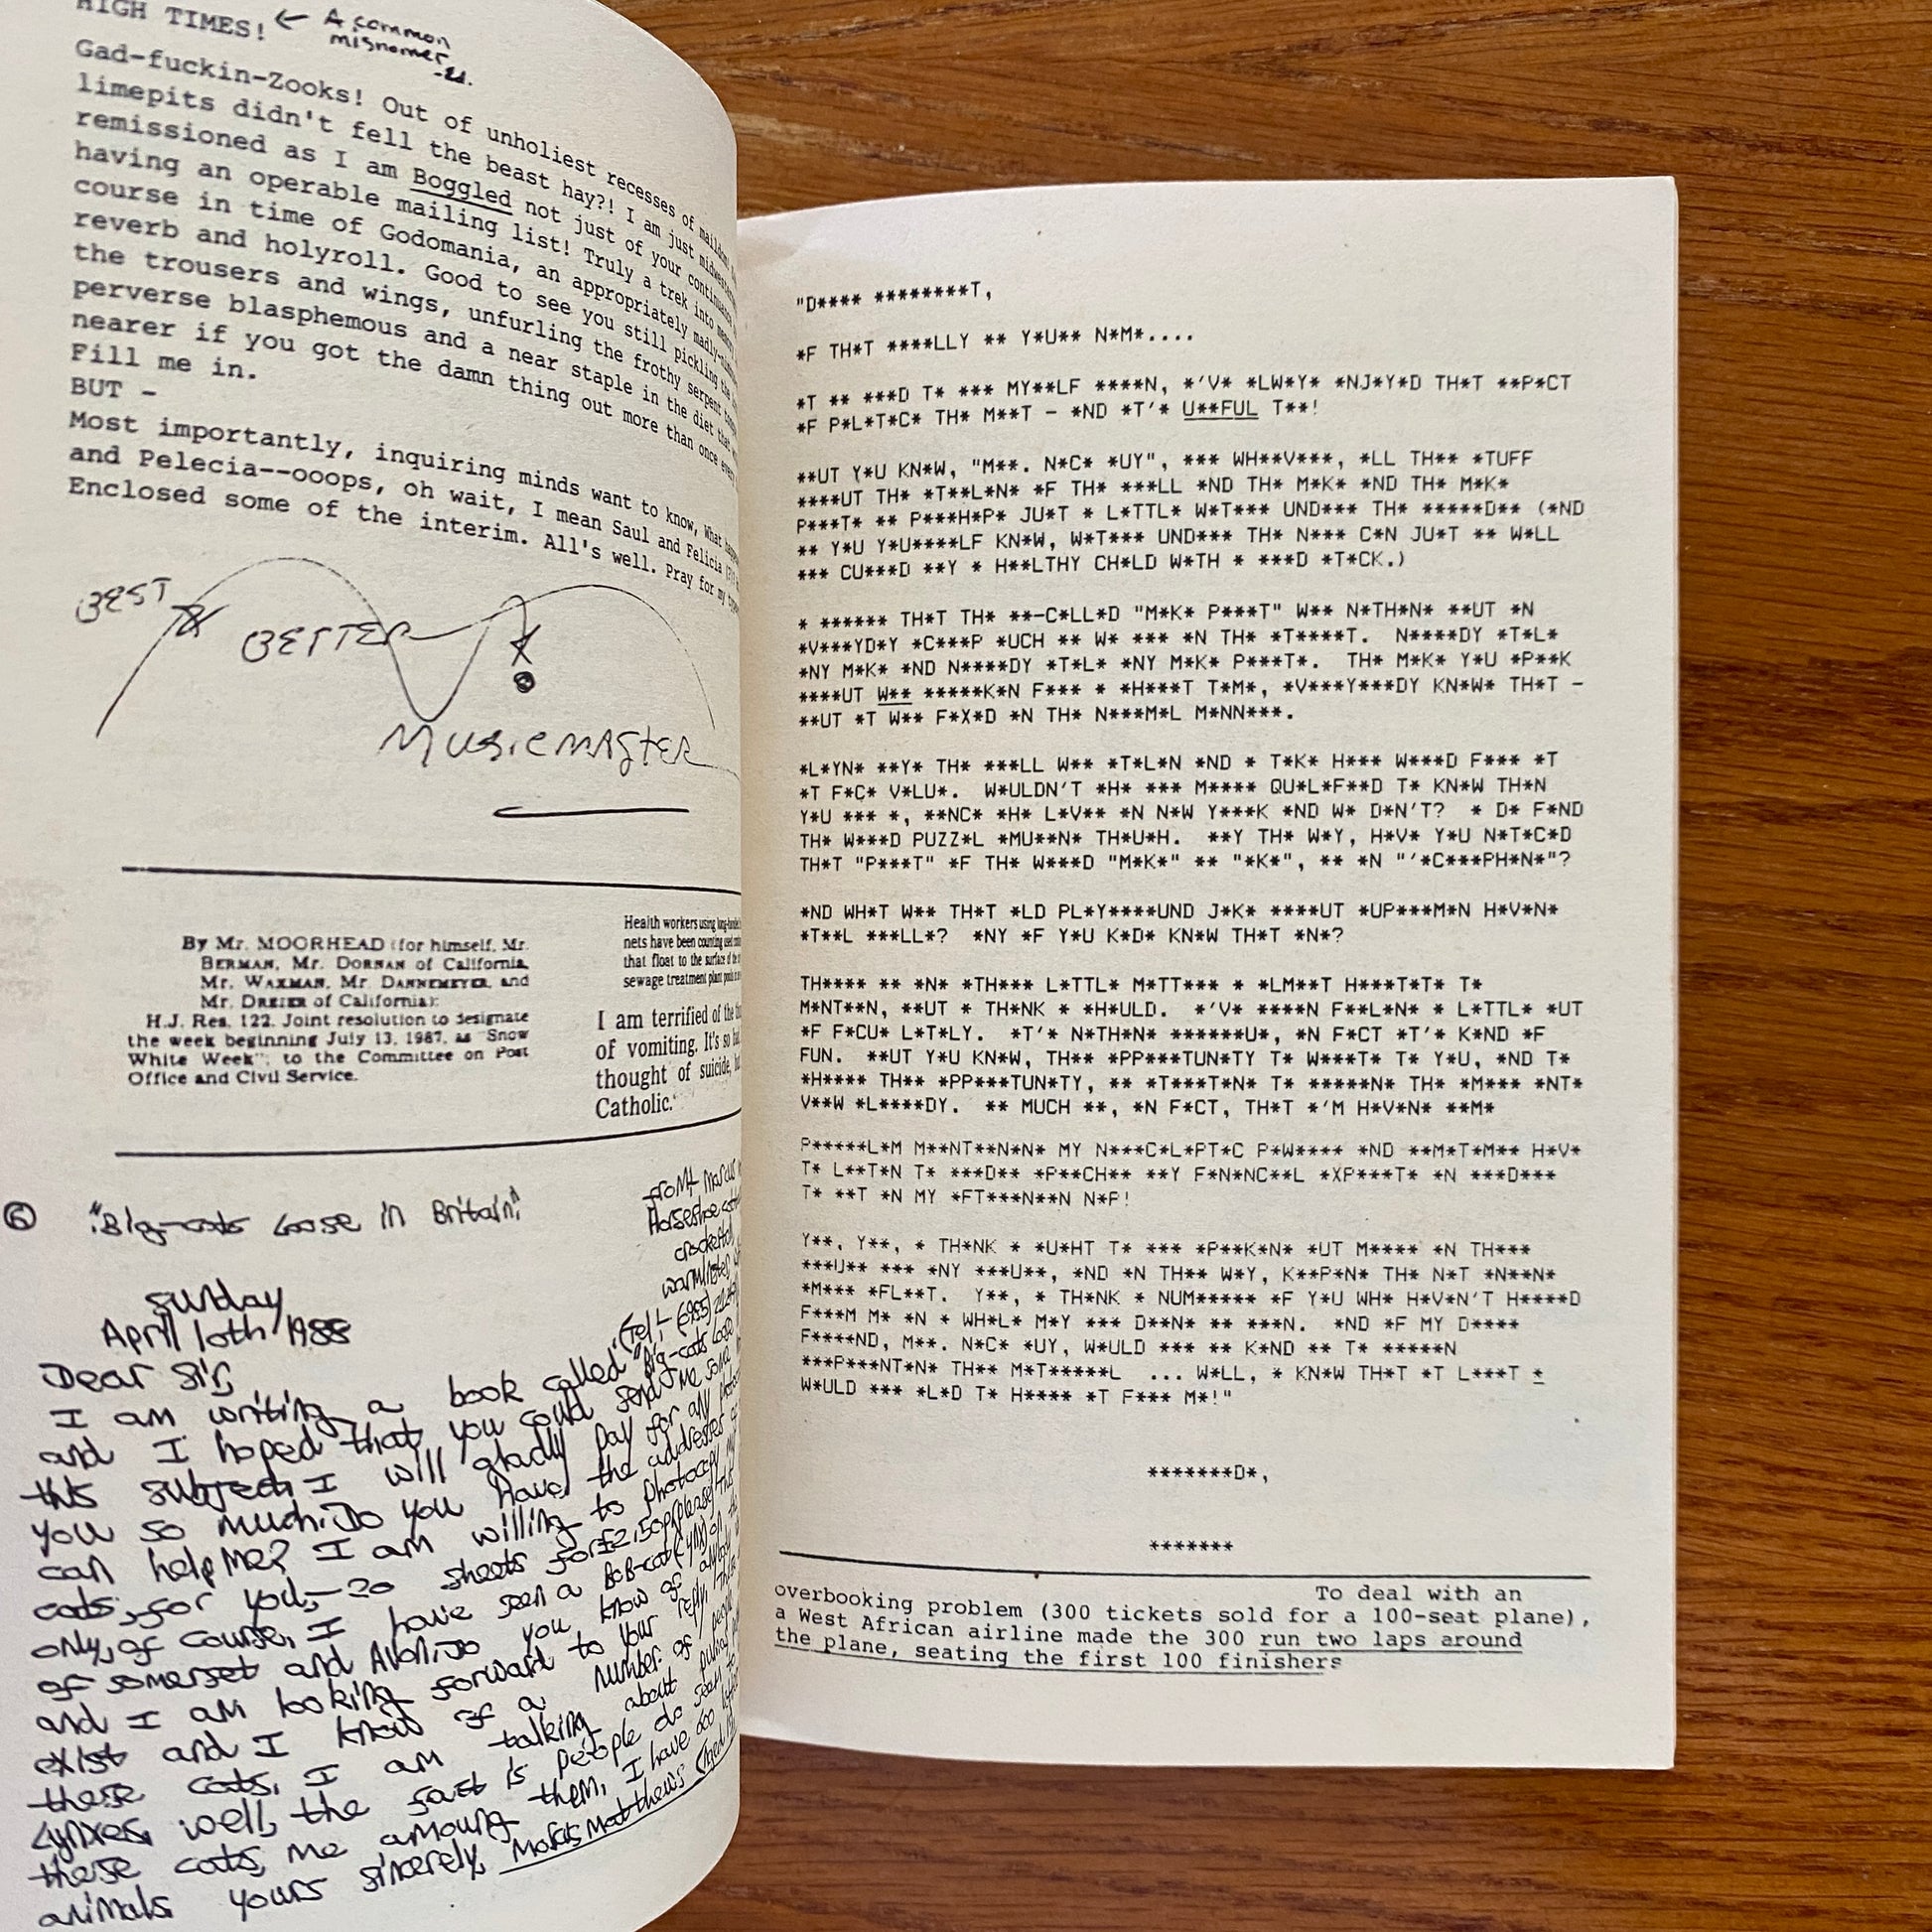 HIGH TIMES!
← A common
misnomer
-Ed.
Gad-fuckin-Zooks! Out of unholiest recesses of maildom
limepits didn't fell the beast hay?! I am just
remissioned as I am Boggled not just of your
having an operable mailing list! Truly a trek into
course in time of Godomania, an appropriately
reverb and holyroll. Good to see you still pickling the
the trousers and wings, unfurling the frothy serpent
perverse blasphemous and a near staple in the diet that
nearer if you got the damn thing out more than once every
Fill me in.
BUT -
Most importantly, inquiring minds want to know, What
and Pelecia--ooops, oh wait, I mean Saul and Felicia
Enclosed some of the interim. All's well. Pray for my
BEST
BETTER
MUSICMASTER
By Mr. MOORHEAD (for himself, Mr.
BERMAN, Mr. DORNAN of California,
Mr. WAXMAN, Mr. DANNEMEYER, and
Mr. DREIER of California):
H.J. Res. 122. Joint resolution to designate
the week beginning July 13, 1987, as "Snow
White Week"; to the Committee on Post
Office and Civil Service.
Health workers using
nets have been counting used
that float to the surface of the
sewage treatment plant
I am terrified of the
of vomiting. It's so
thought of suicide,
Catholic.
6 "Big-cats loose in Britain"
Horseshoe
sunday
April 10th 1988
Dear Sir,
I am writing a book called "Big-cats
and I hoped that you could send me some
this subject. I will gladly pay for any
you so much. Do you have the addresses
can help me? I am willing to photocopy
cats, for you,-20 sheets for £2,50p(please)
only, of course, I have seen a Bob-cat
of somerset and Avon. Do you know of
and I am looking forward to your reply.
exist and I know of a number of people
these cats, I am talking about
Lynxes, well, the fact is people do
these cats, me amoung them, I have 600
animals yours sincerely, Marcus Matthews
"D**** ********T,
*F TH*T ****LLY ** Y*U** N*M*....
*T ** ***D T* *** MY**LF ****N, *'V* *LW*Y* *NJ*Y*D TH*T **P*CT
*F P*L*T*C* TH* M**T - *ND *T'* U**FUL T**!
**UT Y*U KN*W, "M**. N*C* *UY", *** WH**V***, *LL TH** *TUFF
****UT TH* *T**L*N* *F TH* ***LL *ND TH* M*K* *ND TH* M*K*
P***T* ** P***H*P* JU*T * L*TTL* W*T*** UND*** TH* *****D** (*ND
** Y*U Y*U****LF KN*W, W*T*** UND*** TH* N*** C*N JU*T ** W*LL
*** CU***D **Y * H**LTHY CH*LD W*TH * ***D *T*CK.)
* ****** TH*T TH* **-C*LL*D "M*K* P***T" W** N*TH*N* **UT *N
*V***YD*Y *C***P *UCH ** W* *** *N TH* *T****T. N****DY *T*L*
*NY M*K* *ND N****DY *T*L* *NY M*K* P***T*. TH* M*K* Y*U *P**K
****UT W** *****K*N F*** * *H***T T*M*, *V***Y***DY KN*W* TH*T -
**UT *T W** F*X*D *N TH* N***M*L M*NN***.
*L*YN* **Y* TH* ***LL W** *T*L*N *ND * T*K* H*** W***D F*** *T
*T F*C* V*LU*. W*ULDN'T *H* *** M**** QU*L*F**D T* KN*W TH*N
Y*U *** *, **NC* *H* L*V** *N N*W Y***K *ND W* D*N'T? * D* F*ND
TH* W***D PUZZ*L *MU**N* TH*U*H. **Y TH* W*Y, H*V* Y*U N*T*C*D
TH*T "P***T" *F TH* W***D "M*K*" ** "*K*", ** *N "'*C***PH*N*"?
*ND WH*T W** TH*T *LD PL*Y****UND J*K* ****UT *UP***M*N H*V*N*
*T**L ***LL*? *NY *F Y*U K*D* KN*W TH*T *N*?
TH**** ** *N* *TH*** L*TTL* M*TT*** * *LM**T H***T*T* T*
M*NT**N, **UT * TH*NK * *H*ULD. *'V* ****N F**L*N* * L*TTL* *UT
*F F*CU* L*T*LY. *T'* N*TH*N* ******U*, *N F*CT *T'* K*ND *F
FUN. **UT Y*U KN*W, TH** *PP***TUN*TY T* W***T* T* Y*U, *ND T*
*H**** TH** *PP***TUN*TY, ** *T***T*N* T* *****N* TH* *M*** *NT*
V**W *L****DY. ** MUCH **, *N F*CT, TH*T *'M H*V*N* **M*
P*****L*M M**NT**N*N* MY N***C*L*PT*C P*W**** *ND **M*T*M** H*V*
T* L**T*N T* ***D** *P**CH** **Y F*N*NC**L *XP***T* *N ***D***
T* **T *N MY *FT***N**N N*P!
Y**, Y**, * TH*NK * *U*HT T* *** *P**K*N* *UT M**** *N TH***
***U** *** *NY ***U**, *ND *N TH** W*Y, K**P*N* TH* N*T *N**N*
*M*** *FL**T. Y**, * TH*NK * NUM***** *F Y*U WH* H*V*N'T H****D
F***M M* *N * WH*L* M*Y *** D**N* ** ***N. *ND *F MY D****
F****ND, M**. N*C* *UY, W*ULD *** ** K*ND ** T* *****N
***P***NT*N* TH** M*T*****L ... W*LL, * KN*W TH*T *T L***T *
W*ULD *** *L*D T* H**** *T F*** M*!"
*******D*,
*******
To deal with an
overbooking problem (300 tickets sold for a 100-seat plane),
a West African airline made the 300 run two laps around
the plane, seating the first 100 finishers